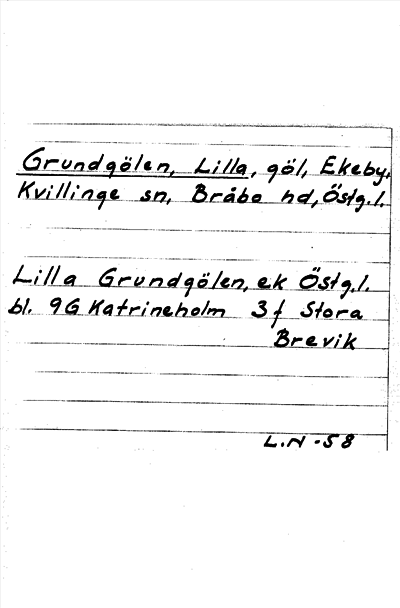 Grundgölen, Lilla, göl, Ekeby,
Kvillinge sn, Bråbo hd, Östg.l.
Lilla Grundgölen, ek Östg.l.
bl. 9G Katrineholm 3f Stora
Brevik
L.N -58